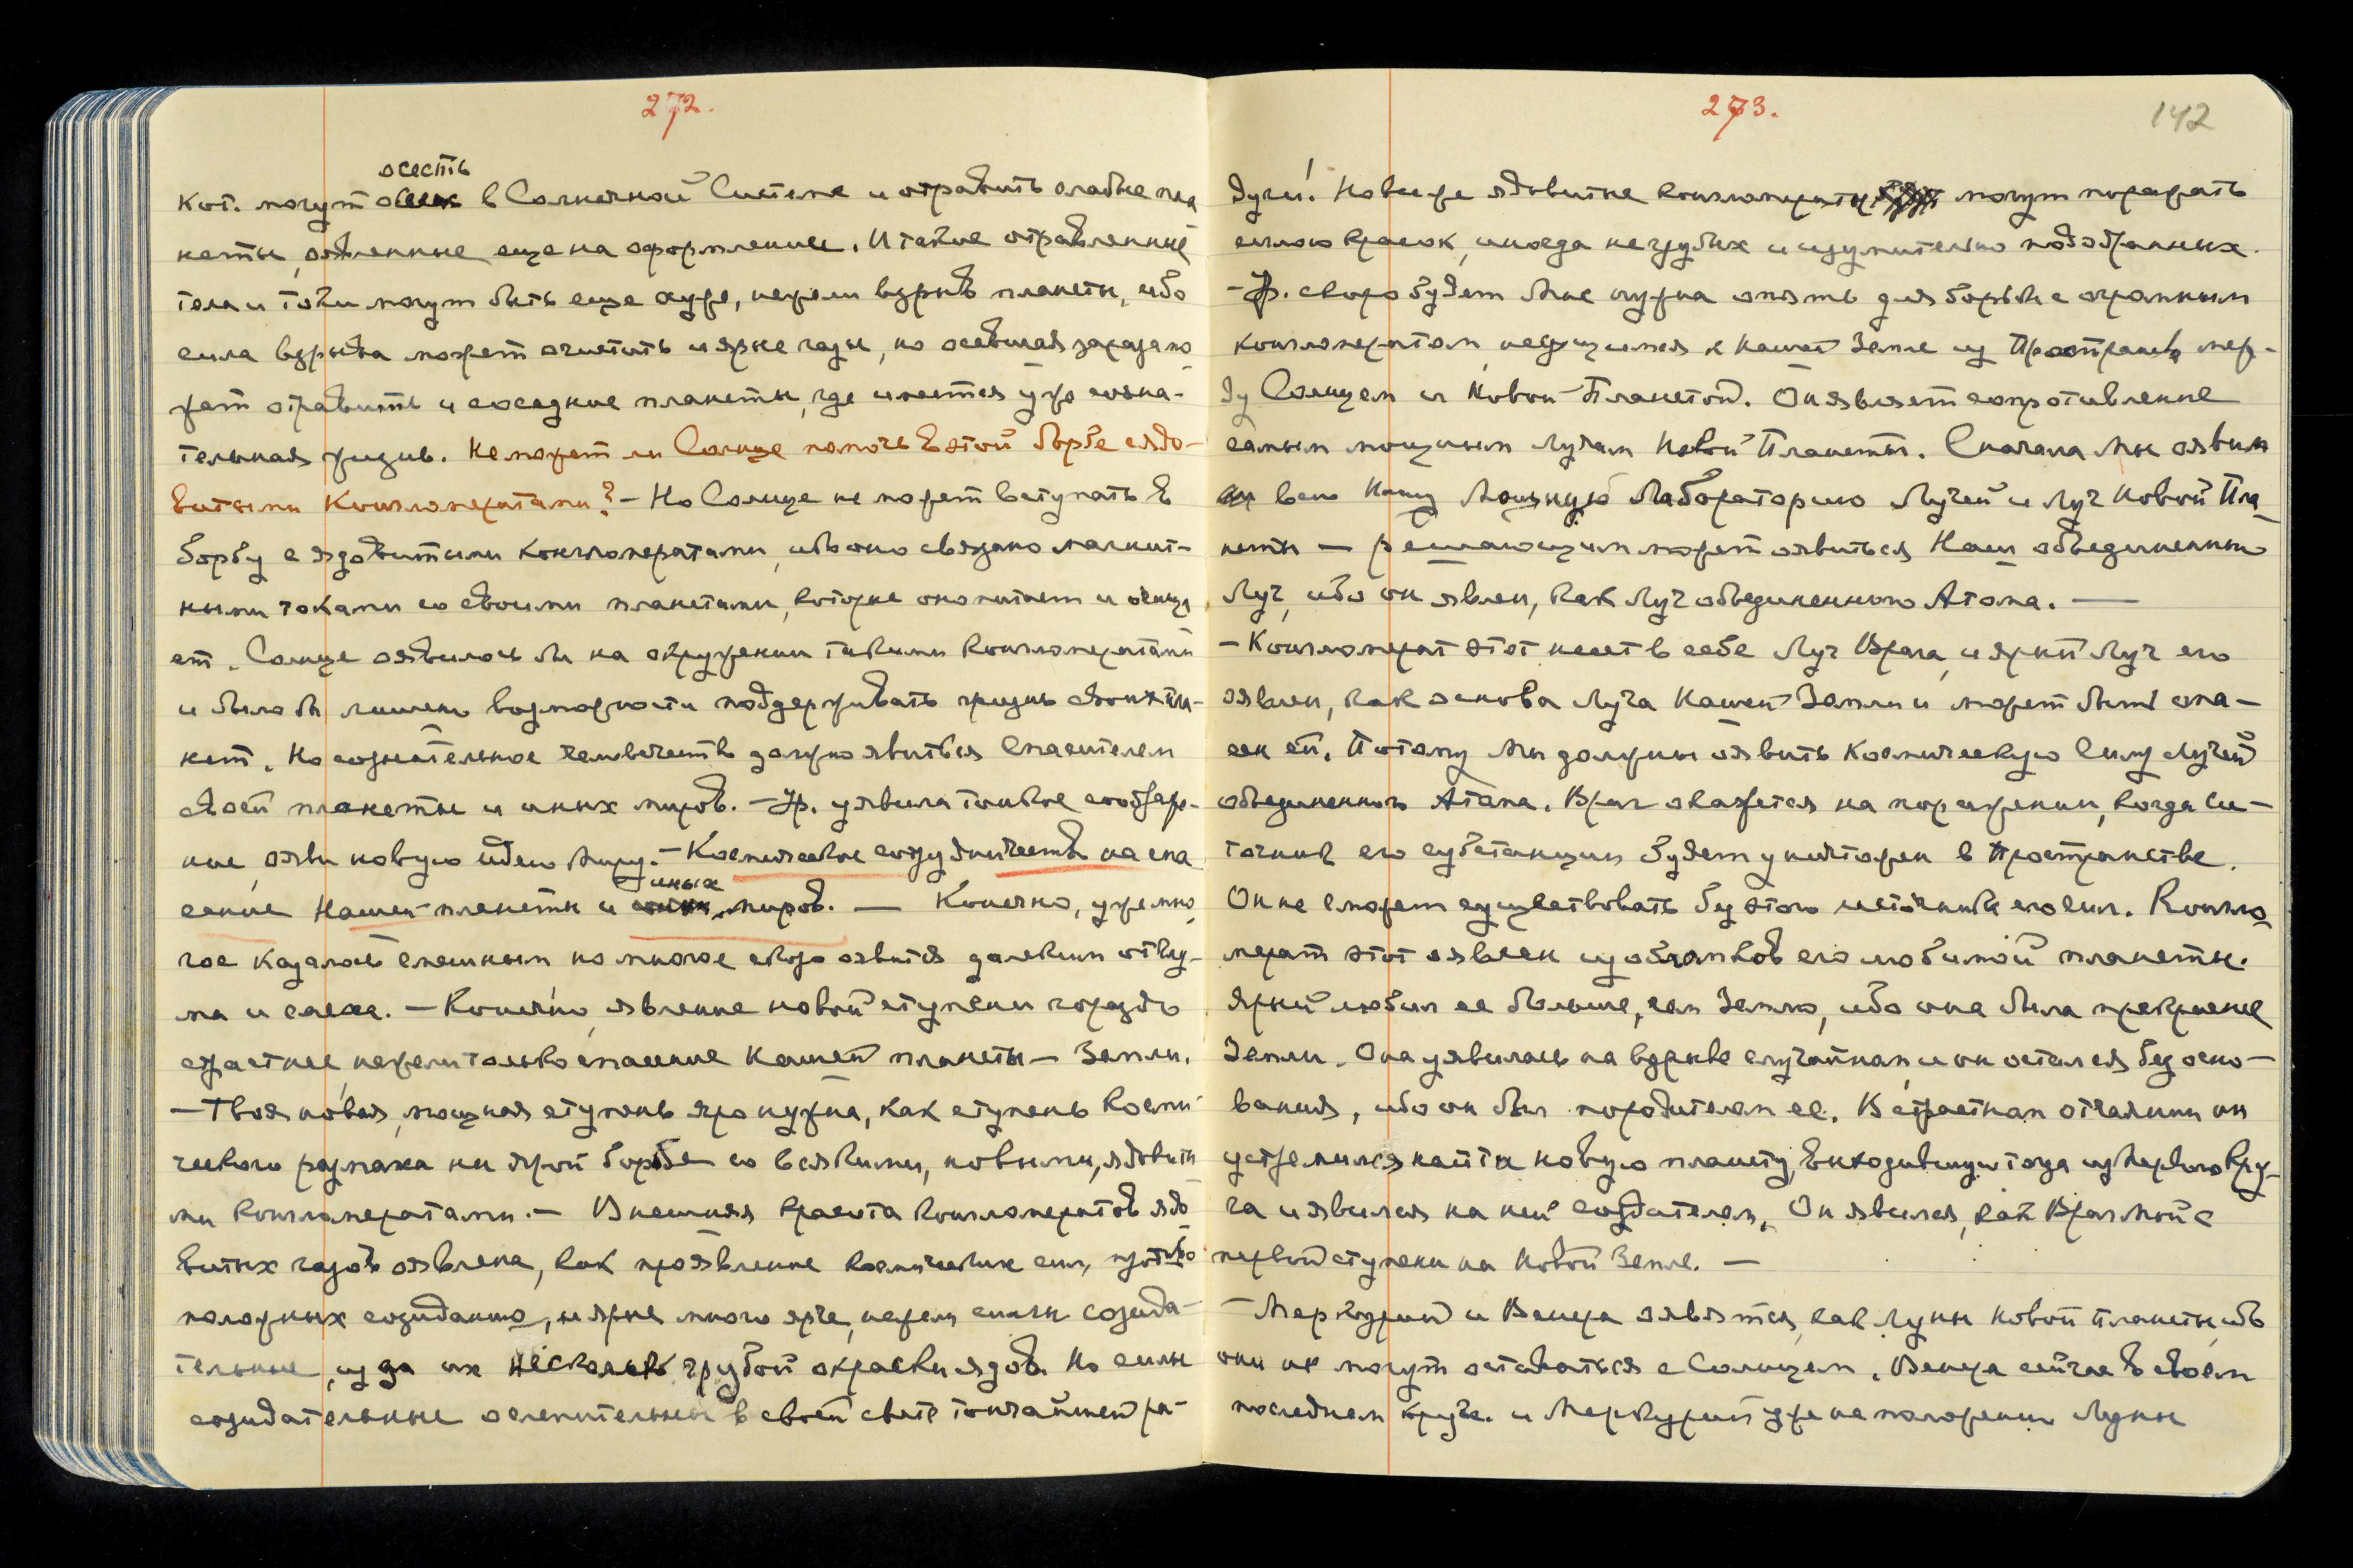 272.
осесть
кот. могут в Солнечной Системе и отравить слабые пла
неты, оявленные еще на оформление. И такие отравленные
тела и токи могут быть еще хуже, нежели взрыв планеты, ибо
сила взрыва может очистить и ярые газы, но осевшая зараза мо-
жет отравить и соседние планеты, где имеется уже созна-
тельная жизнь. Не может ли Солнце помочь в этой борьбе с ядо-
витыми Конгломератами? – Но Солнце не может вступать в
борьбу с ядовитыми конгломератами, ибо оно связано магнит-
ными токами со своими планетами, которые оно питает и очища
ет. Солнце оявилось бы на окружении такими конгломератами
и было бы лишено возможности поддерживать жизнь своих пла-
нет. Но сознательное человечество должно явиться Спасителем
своей планеты и иных миров. – Ур. уявила тонкое соображе-
ние, ояви новую идею миру. – Космическое сотрудничество на спа
сение Нашей планеты и
иных
миров. — Конечно, уже мно
гое казалось смешным но многое скоро оявится далеким от глу-
ма и смеха. – Конечно, явление новой ступени гораздо
страстнее, нежели только спасение Нашей планеты – Земли.
– Твоя новая, мощная ступень яро нужна, как ступень косми
ческого размаха на ярой борьбе со всякими, новыми, ядовиты
ми конгломератами. – Внешняя красота конгломератов ядо
витых газов оявлена, как проявление космических сил, противо
положных созиданию, и ярые много ярче, нежели силы созида-
тельные, из за их несколько грубой окраски ядов. Но силы
созидательные ослепительны в своей свите тончайшей ра-
273.
142
дуги! Но все же ядовитые конгломераты могут поражать
силою красок, иногда не грубых и изумительно подобранных.
– Ур. скоро будет Мне нужна опять для борьбы с огромным
конгломератом, несущимся к нашей Земле из Пространств меж-
ду Солнцем и Новой Планетой. Он являет сопротивление
самым мощным лучам Новой Планеты. Сначала Мы оявим
всю Нашу Мощную Лабораторию Лучей и Луч Новой Пла
неты — решающим может оявиться Наш объединенный
Луч, ибо он явлен, как Луч объединенного Атома. —
– Конгломерат этот несет в себе Луч Врага, и ярый Луч его
оявлен, как основа Луча Нашей Земли и может быть опа-
сен ей. Потому Мы должны оявить Космическую Силу Лучей
объединенного Атома. Враг окажется на поражении, когда ис-
точник его субстанции будет уничтожен в Пространстве.
Он не сможет существовать без этого источника его сил. Конгло
мерат этот оявлен из обломков его любимой планеты.
Ярый любил ее больше, чем Землю, ибо она была прекраснее
Земли. Она уявилась на взрыве случайном, и он остался без осно-
вания, ибо он был породителем ее. В страстном отчаянии он
устремился найти новую планету, выходившую тогда из Первого Кру-
га и явился на ней создателем. Он явился, как Враг Мой с
первой ступени на Новой Земле. —
– Меркурий и Венера оявятся, как Луны Новой Планеты, ибо
они не могут оставаться с Солнцем. Венера сейчас в своем
последнем Круге. и Меркурий уже на положении Луны